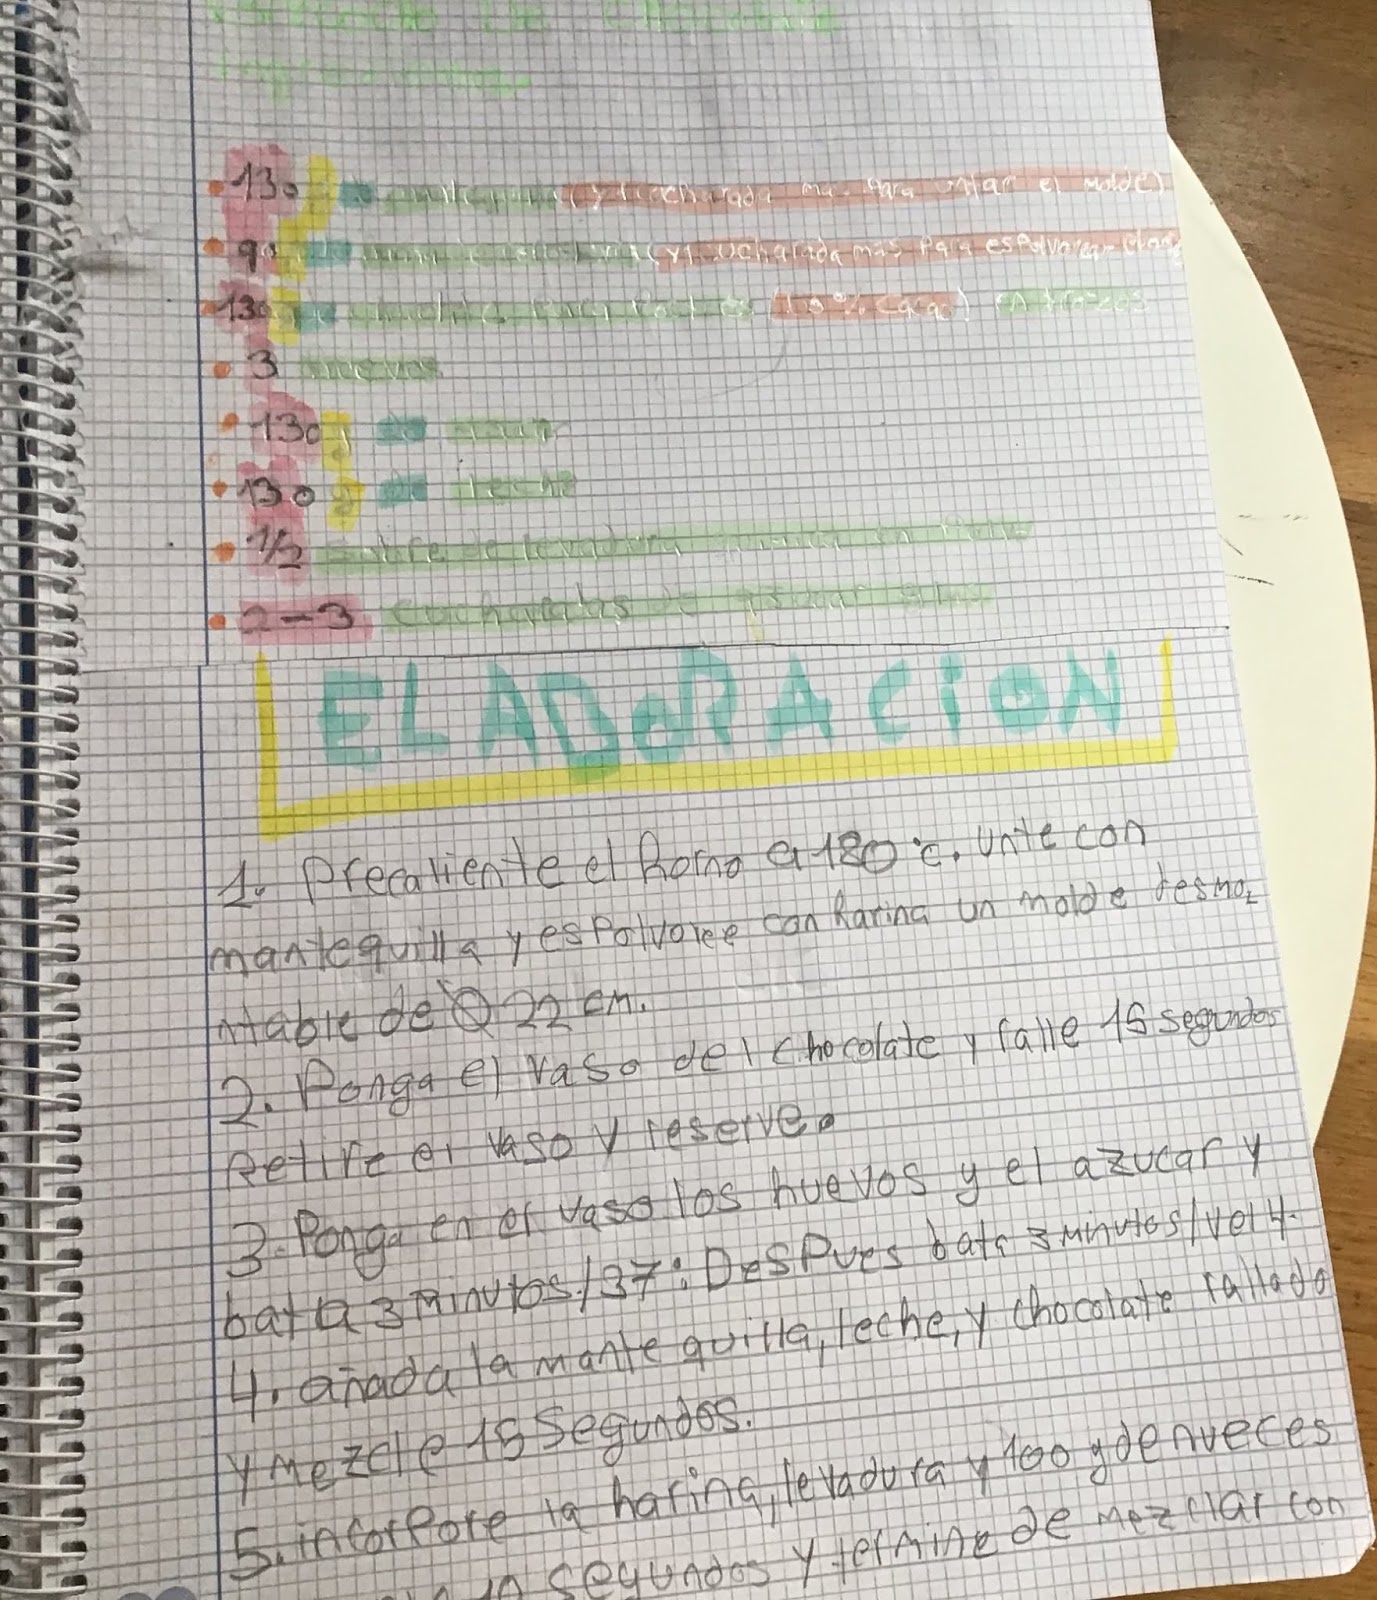 de chocolate
130 g de mantequilla (y 1 cucharada mas para untar el molde)
90 g de (y 1 cucharada mas para espolvorear
130 g de chocolate para postres (70% cacao) en trozos
3 huevos
130 g de azucar
130 g de leche
1/2 sobre de levadura quimica en polvo
2-3 cucharadas de azucar glas
ELABORACION
1. Precaliente el horno a 180 °c. Unte con
mantequilla y espolvoree con harina un molde desmo
ntable de Ø 22 cm.
2. Ponga el vaso del chocolate y ralle 15 segundos
Retire el vaso y reserve.
3. Ponga en el vaso los huevos y el azucar y
bata 3 minutos/37°. Despues bata 3 minutos/vel 4.
4. añada la mantequilla, leche, y chocolate rallado
y mezcle 15 segundos.
5. incorpore la harina, levadura y 100 g de nueces
segundos y termine de mezclar con